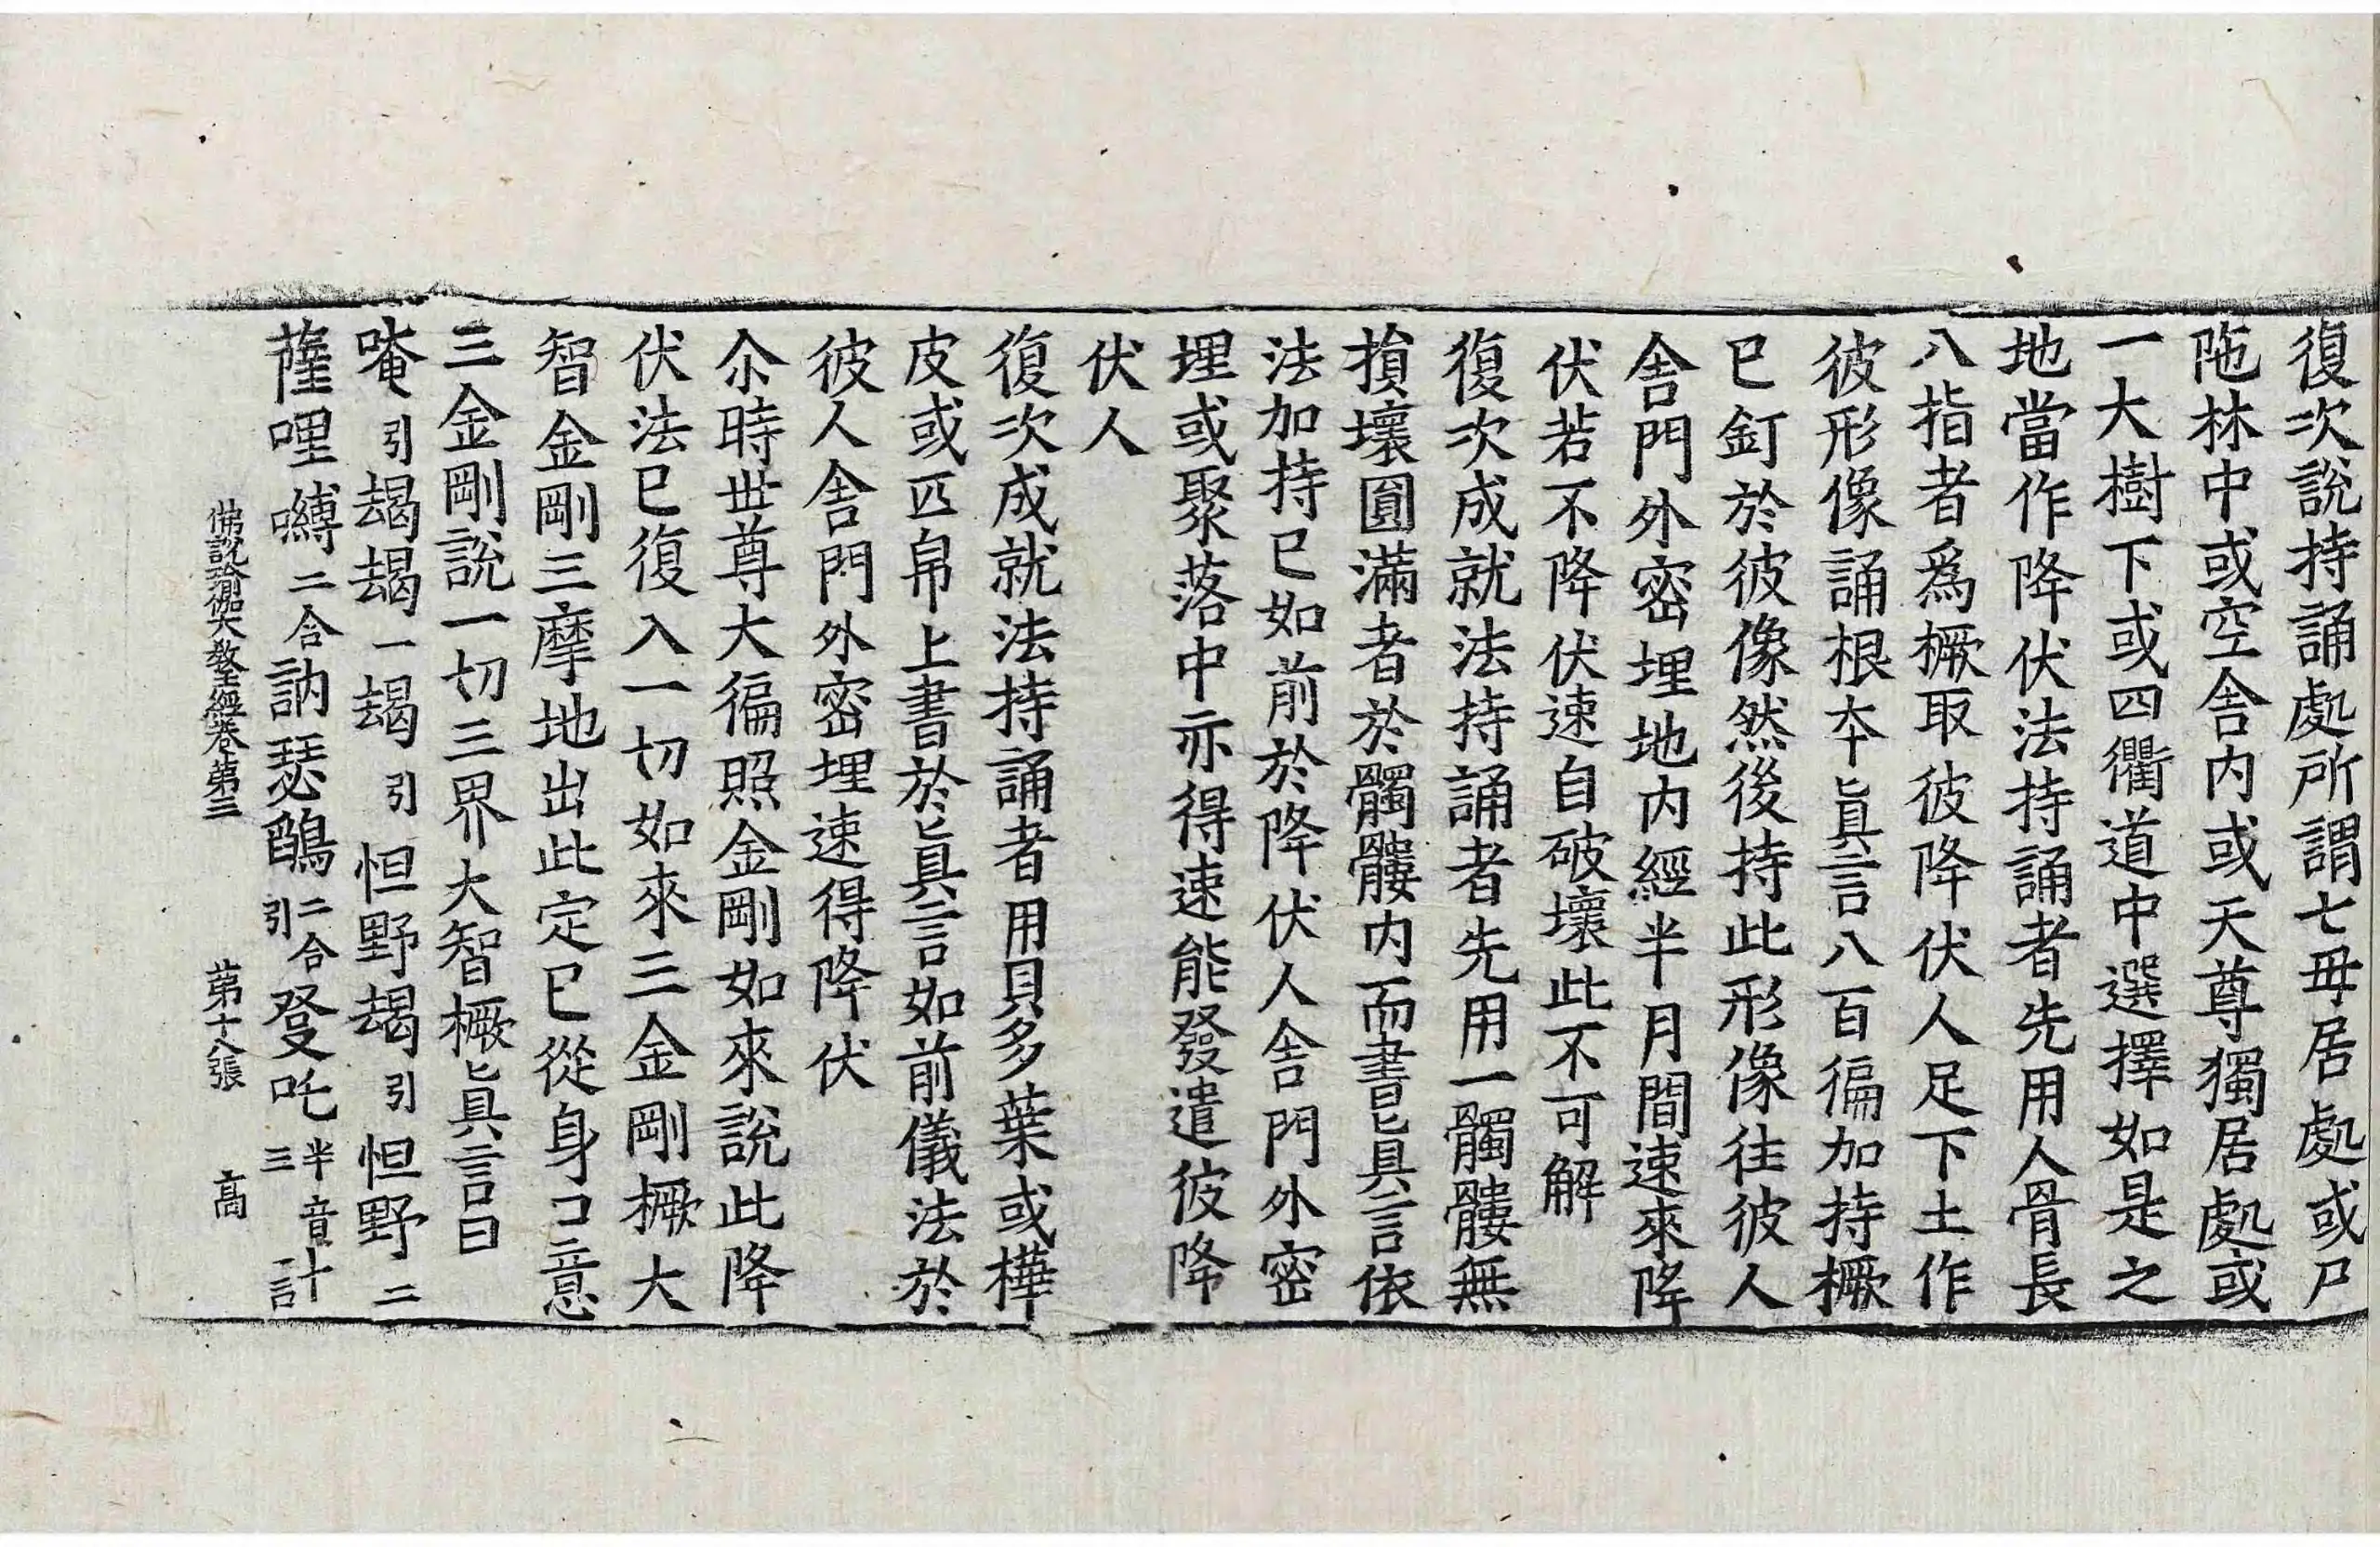 復次說持誦處所謂七毋居處或尸
陁林中或空舍內或天尊獨居處或
一大樹下或四衢道中選擇如是之
地當作降伏法持誦者先用人骨長
八指者爲橛取彼降伏人足下土作
彼形像誦根夲眞言八百徧加持橛
巳釘於彼像然後持此形像往彼人
舍門外密埋地內經半月間速來降
伏若不降伏速自破壞此不可解
復次成就法持誦者先用一髑髏無
損壞圓滿者於髑髏内而書眞言依
法加持已如前於降伏人舍門外密
埋或聚落中亦得速能發遣彼降
伏人
復次成就法持誦者用貝多葉或樺
皮或匹帛上書於眞言如前儀法於
彼人舍門外密埋速得降伏
尒時世尊大徧照金剛如來說此降
伏法巳復入一切如來三金剛橛大
智金剛三摩地出此定巳從身口意
三金剛說一切三界大智橛眞言曰
唵引朅朅一朅引怛野朅引怛野二
薩哩嚩二合訥瑟鵮二合引發吒半音三計
佛說瑜伽大教王經卷第三 第十八張 高